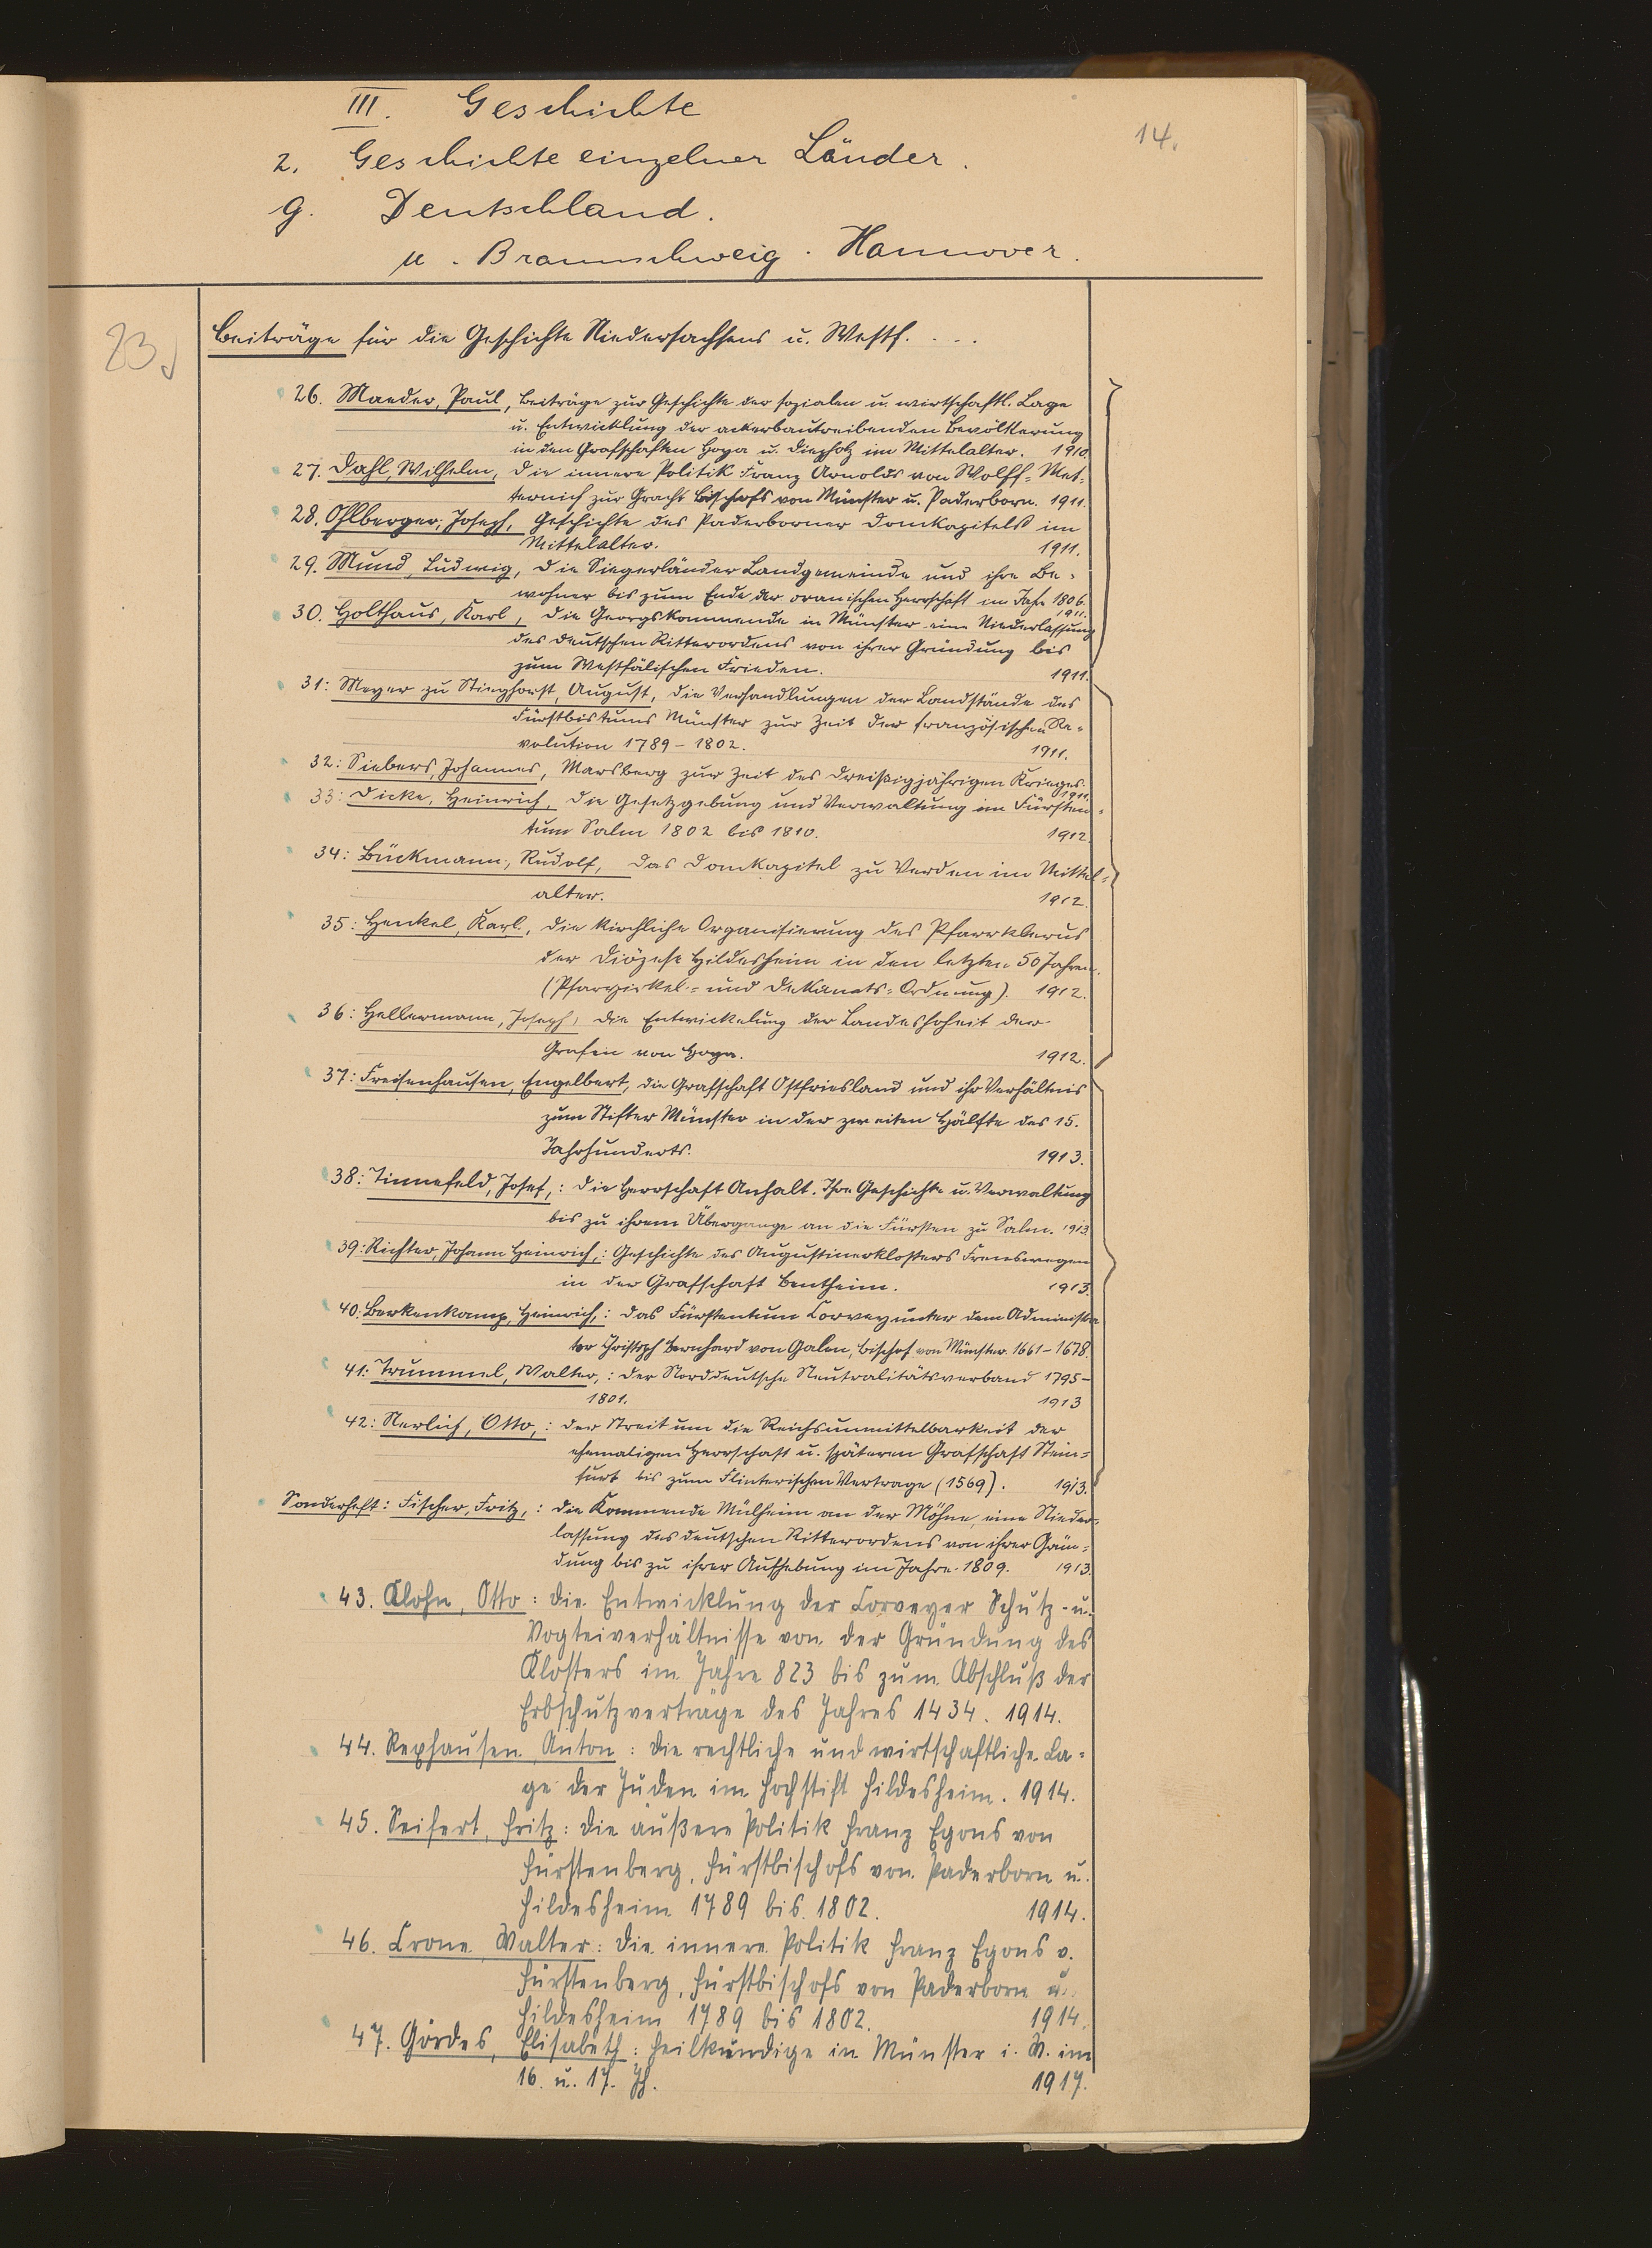 III. Geschichte
14.
2. Geschichte einzelner Länder.
g. Deutschland.
u. Braunschweig. Hannover.
23
Beiträge für die Geschichte Niedersachsens u. Westf. . . .
26. Maeder, Paul, Beiträge zur Geschichte der sozialen u. wirtschaftl. Lage
u. Entwicklung der ackerbautreibenden Bevölkerung
in den Grafschaften Hoya u. Diepholz im Mittelalter. 1910
27. Dahl, Wilhelm, Die innere Politik Franz Arnolds von Wolff-Met-
ternich zur Gracht Bischofs von Münster u. Paderborn. 1911.
28. Ohlberger, Joseph, Geschichte des Paderborner Domkapitels im
Mittelalter. 1911.
29. Mund, Ludwig, Die Siegerländer Landgemeinde und ihre Be-
wohner bis zum Ende der oranischen Herrschaft im Jahr 1806.
1911.
30. Holthaus, Karl, Die Georgskommende in Münster eine Niederlassung
des deutschen Ritterordens von ihrer Gründung bis
zum Westfälischen Frieden. 1911.
31: Meyer zu Stieghorst, August, die Verhandlungen der Landstände des
Fürstbistums Münster zur Zeit der französischen Re-
volution 1789-1802. 1911.
32: Siebers, Johannes, Marsberg zur Zeit des Dreißigjährigen Krieges.
1911.
33: Dicke, Heinrich, Die Gesetzgebung und Verwaltung im Fürsten-
tum Salm 1802 bis 1810. 1912
34: Bückmann, Rudolf, Das Domkapitel zu Verden im Mittel-
alter. 1912.
35: Henkel, Karl, Die kirchliche Organisierung des Pfarrklerus
der Diözese Hildesheim in den letzten 50 Jahren.
(Pfarrzirkel- und Dekanats-Ordnung). 1912.
36: Hellermann, Joseph, Die Entwickelung der Landeshoheit der
Grafen von Hoya. 1912.
37: Freisenhausen, Engelbert, die Grafschaft Ostfriesland und ihr Verhältnis
zum Stifter Münster in der zweiten Hälfte des 15.
Jahrhunderts. 1913.
38: Tinnefeld, Josef,: Die Herrschaft Anholt. Ihre Geschichte u. Verwaltung
bis zu ihrem Übergange an die Fürsten zu Salm. 1913
39: Richter, Johann Heinrich,: Geschichte des Augustinerklosters Frenswegen
in der Grafschaft Bentheim. 1913.
40. Berkenkamp, Heinrich,: Das Fürstentum Corvey unter dem Administra
tor Christoph Bernhard von Galen, Bischof von Münster 1661-1678.
41: Trummel, Walter,: Der Norddeutsche Neutralitätsverband 1795-
1801. 1913
42: Nerlich, Otto,: Der Streit um die Reichsunmittelbarkeit der
ehemaligen Herrschaft u. späteren Grafschaft Stein-
furt bis zum Flinterischen Vertrage (1569). 1913.
Sonderheft: Fischer, Fritz,: Die Kommende Mülheim an der Möhne, eine Nieder-
lassung des deutschen Ritterordens von ihrer Grün-
dung bis zu ihrer Aufhebung im Jahre 1809. 1913.
43. Klohn, Otto: Die Entwicklung der Corveyer Schutz- u.
Vogteiverhältnisse von der Gründung des
Klosters im Jahre 823 bis zum Abschluß der
Erbschutzverträge des Jahres 1434. 1914.
44. Rexhausen, Anton: Die rechtliche und wirtschaftliche La-
ge der Juden im Hochstift Hildesheim. 1914.
45. Seifert, Fritz: Die äußere Politik Franz Egons von
Fürstenberg, Fürstbischofs von Paderborn u.
Hildesheim 1789 bis 1802. 1914.
46. Crone, Walter: Die innere Politik Franz Egons v.
Fürstenberg, Fürstbischofs von Paderborn u.
Hildesheim 1789 bis 1802. 1914.
47. Gördes, Elisabeth: Heilkundige in Münster i. W. im
16. u. 17. Jh. 1917.